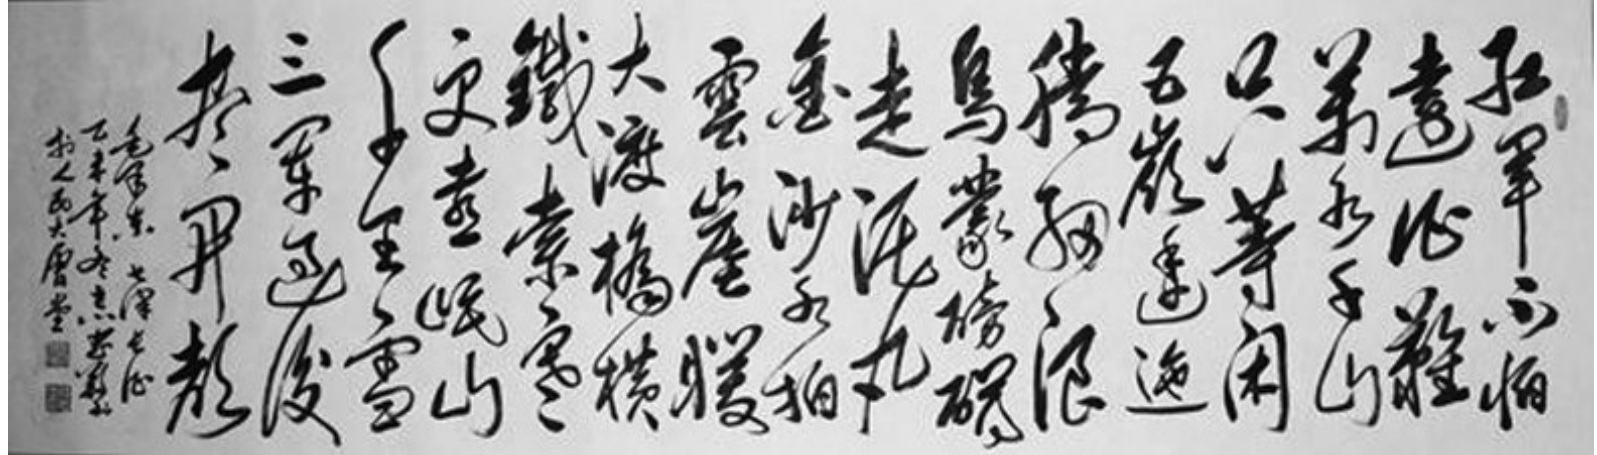 紅軍不怕
遠征難
萬水千山
只等闲
五嶺逶迤
腾细浪
烏蒙磅礴
走泥丸
金沙水拍
雲崖暖
大渡橋横
鐵索寒
更喜岷山
千里雪
三軍過後
盡開顔
毛澤東七律長征
乙未年冬
於人民大會堂